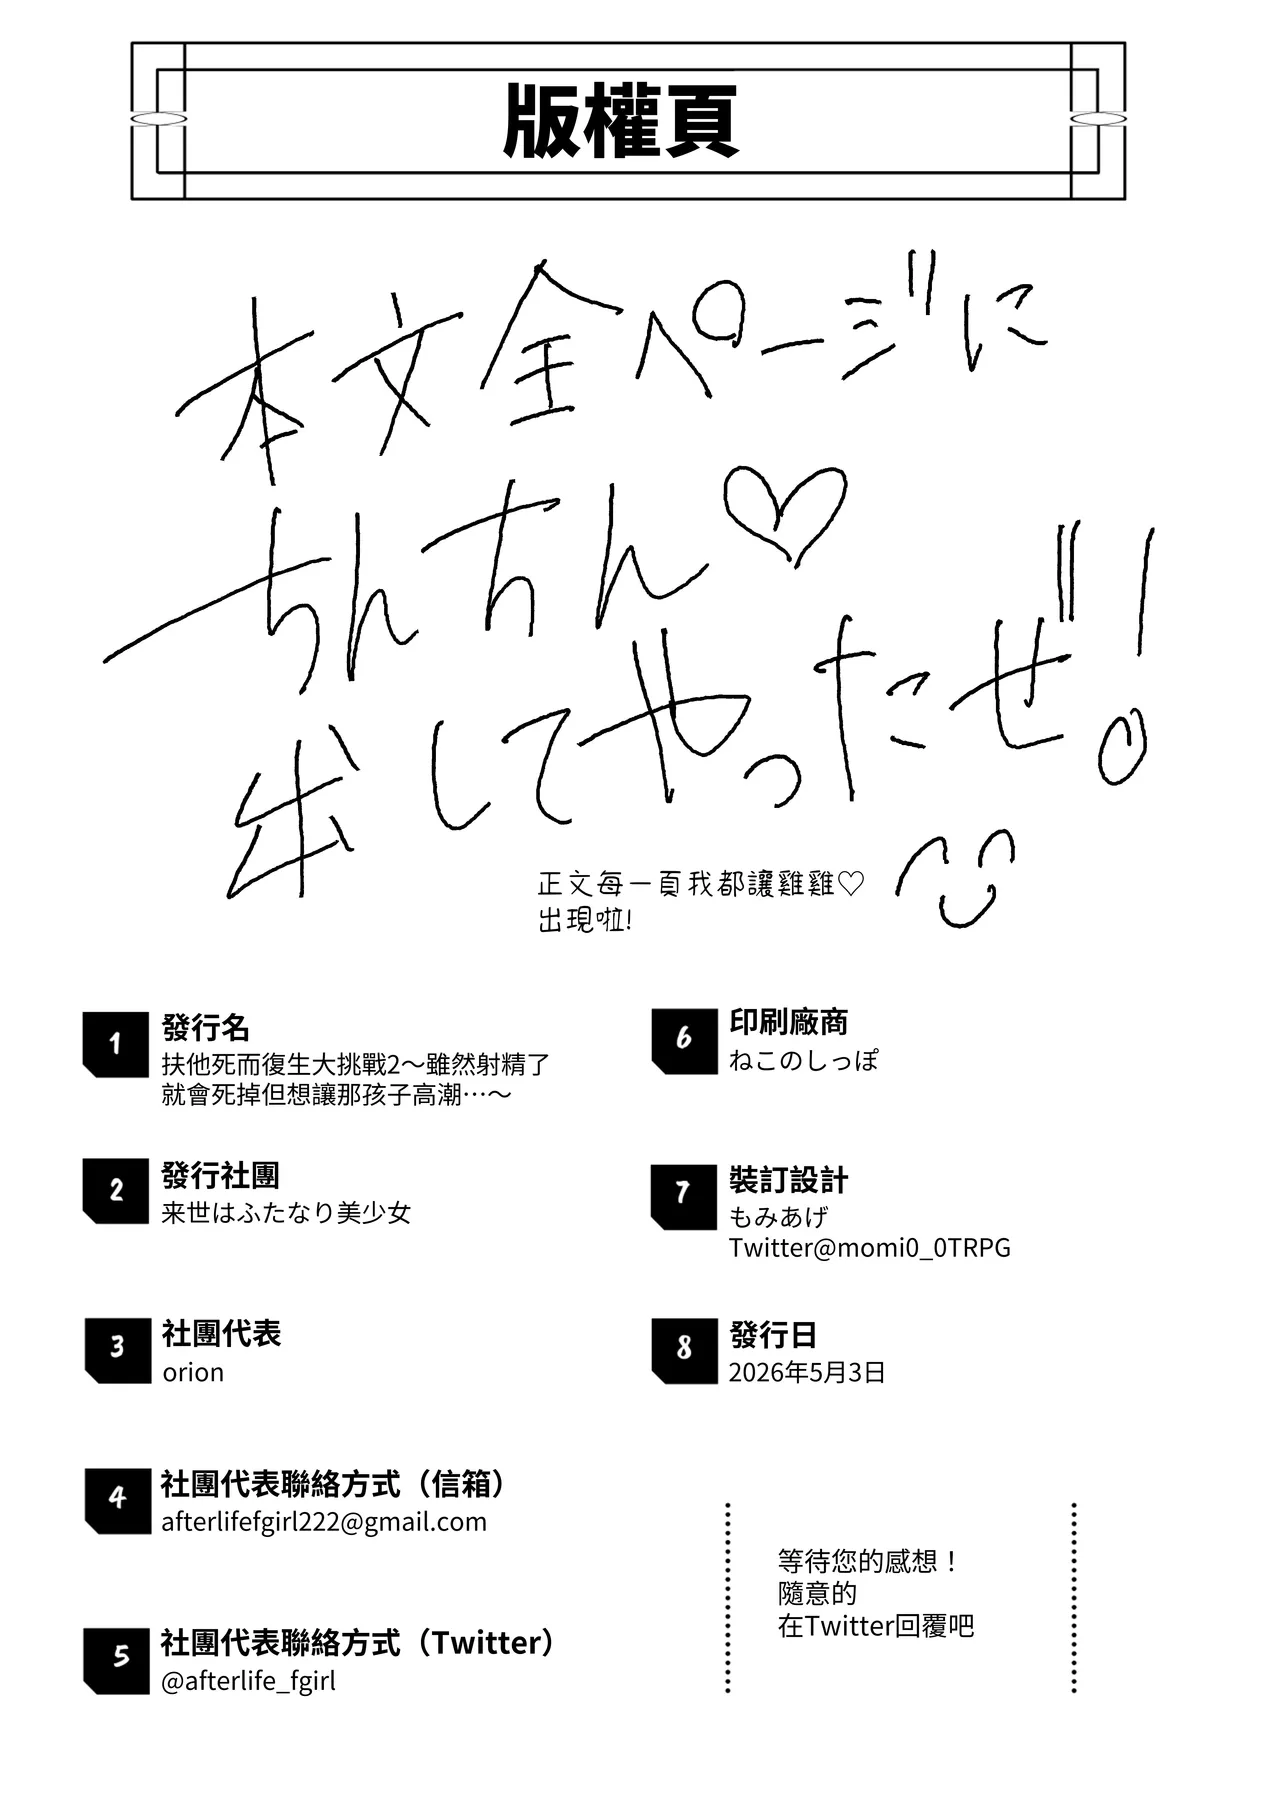 版權頁
本文全ページに
ちんちん♡
出してやったぜ!
正文每一頁我都讓雞雞♡
出現啦!
1
發行名
扶他死而復生大挑戰2～雖然射精了
就會死掉但想讓那孩子高潮…～
2
發行社團
来世はふたなり美少女
3
社團代表
orion
4
社團代表聯絡方式（信箱）
afterlifefgirl222@gmail.com
5
社團代表聯絡方式（Twitter）
@afterlife_fgirl
6
印刷廠商
ねこのしっぽ
7
裝訂設計
もみあげ
Twitter@momi0_0TRPG
8
發行日
2026年5月3日
等待您的感想！
隨意的
在Twitter回覆吧